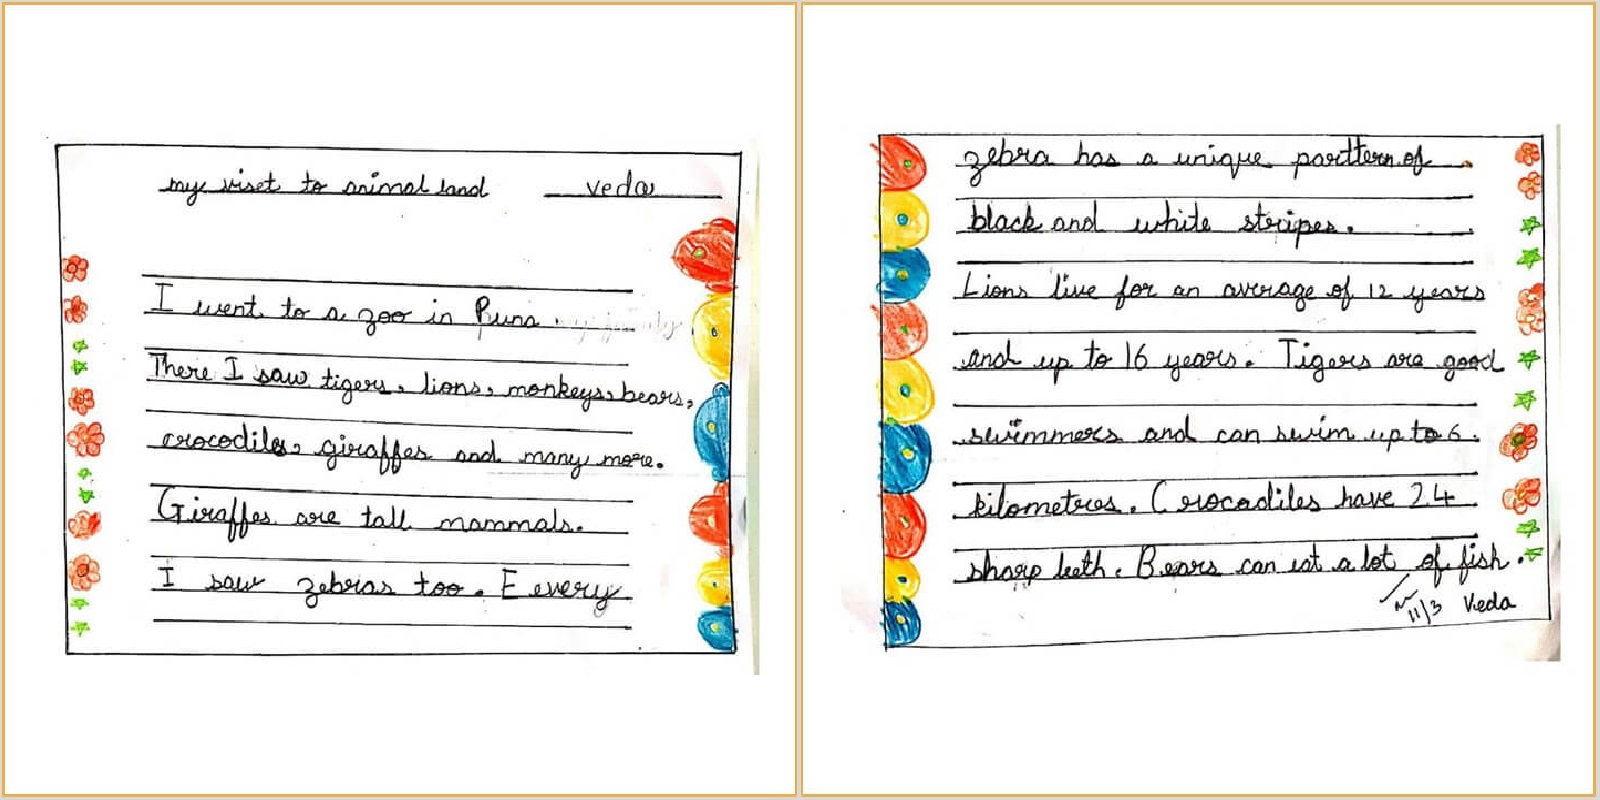 my viset to animal land veda
I went to a zoo in Puna.
There I saw tigers, lions, monkeys, bears,
crocodiles, giraffes and many more.
Giraffes are tall mammals.
I saw zebras too. E every
zebra has a unique parttern of
black and white stripes.
Lions live for an average of 12 years
and up to 16 years. Tigers are good
swimmers and can swim up to 6.
kilometres. Crocadiles have 24
sharp teeth. Bears can eat a lot of fish.
11/3 Veda